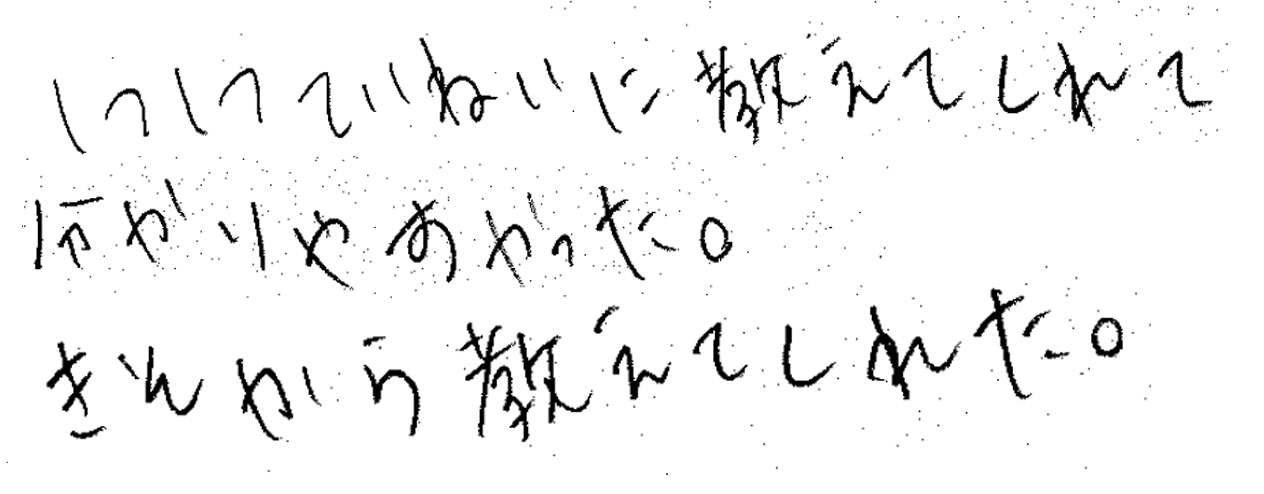 1つ1つていねいに教えてくれて
わかりやすかった。
きそから教えてくれた。